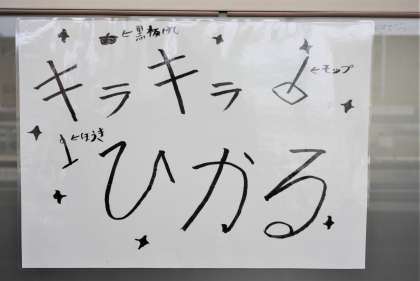 ←黒板消し
キラキラ
←モップ
←ほうき
ひかる